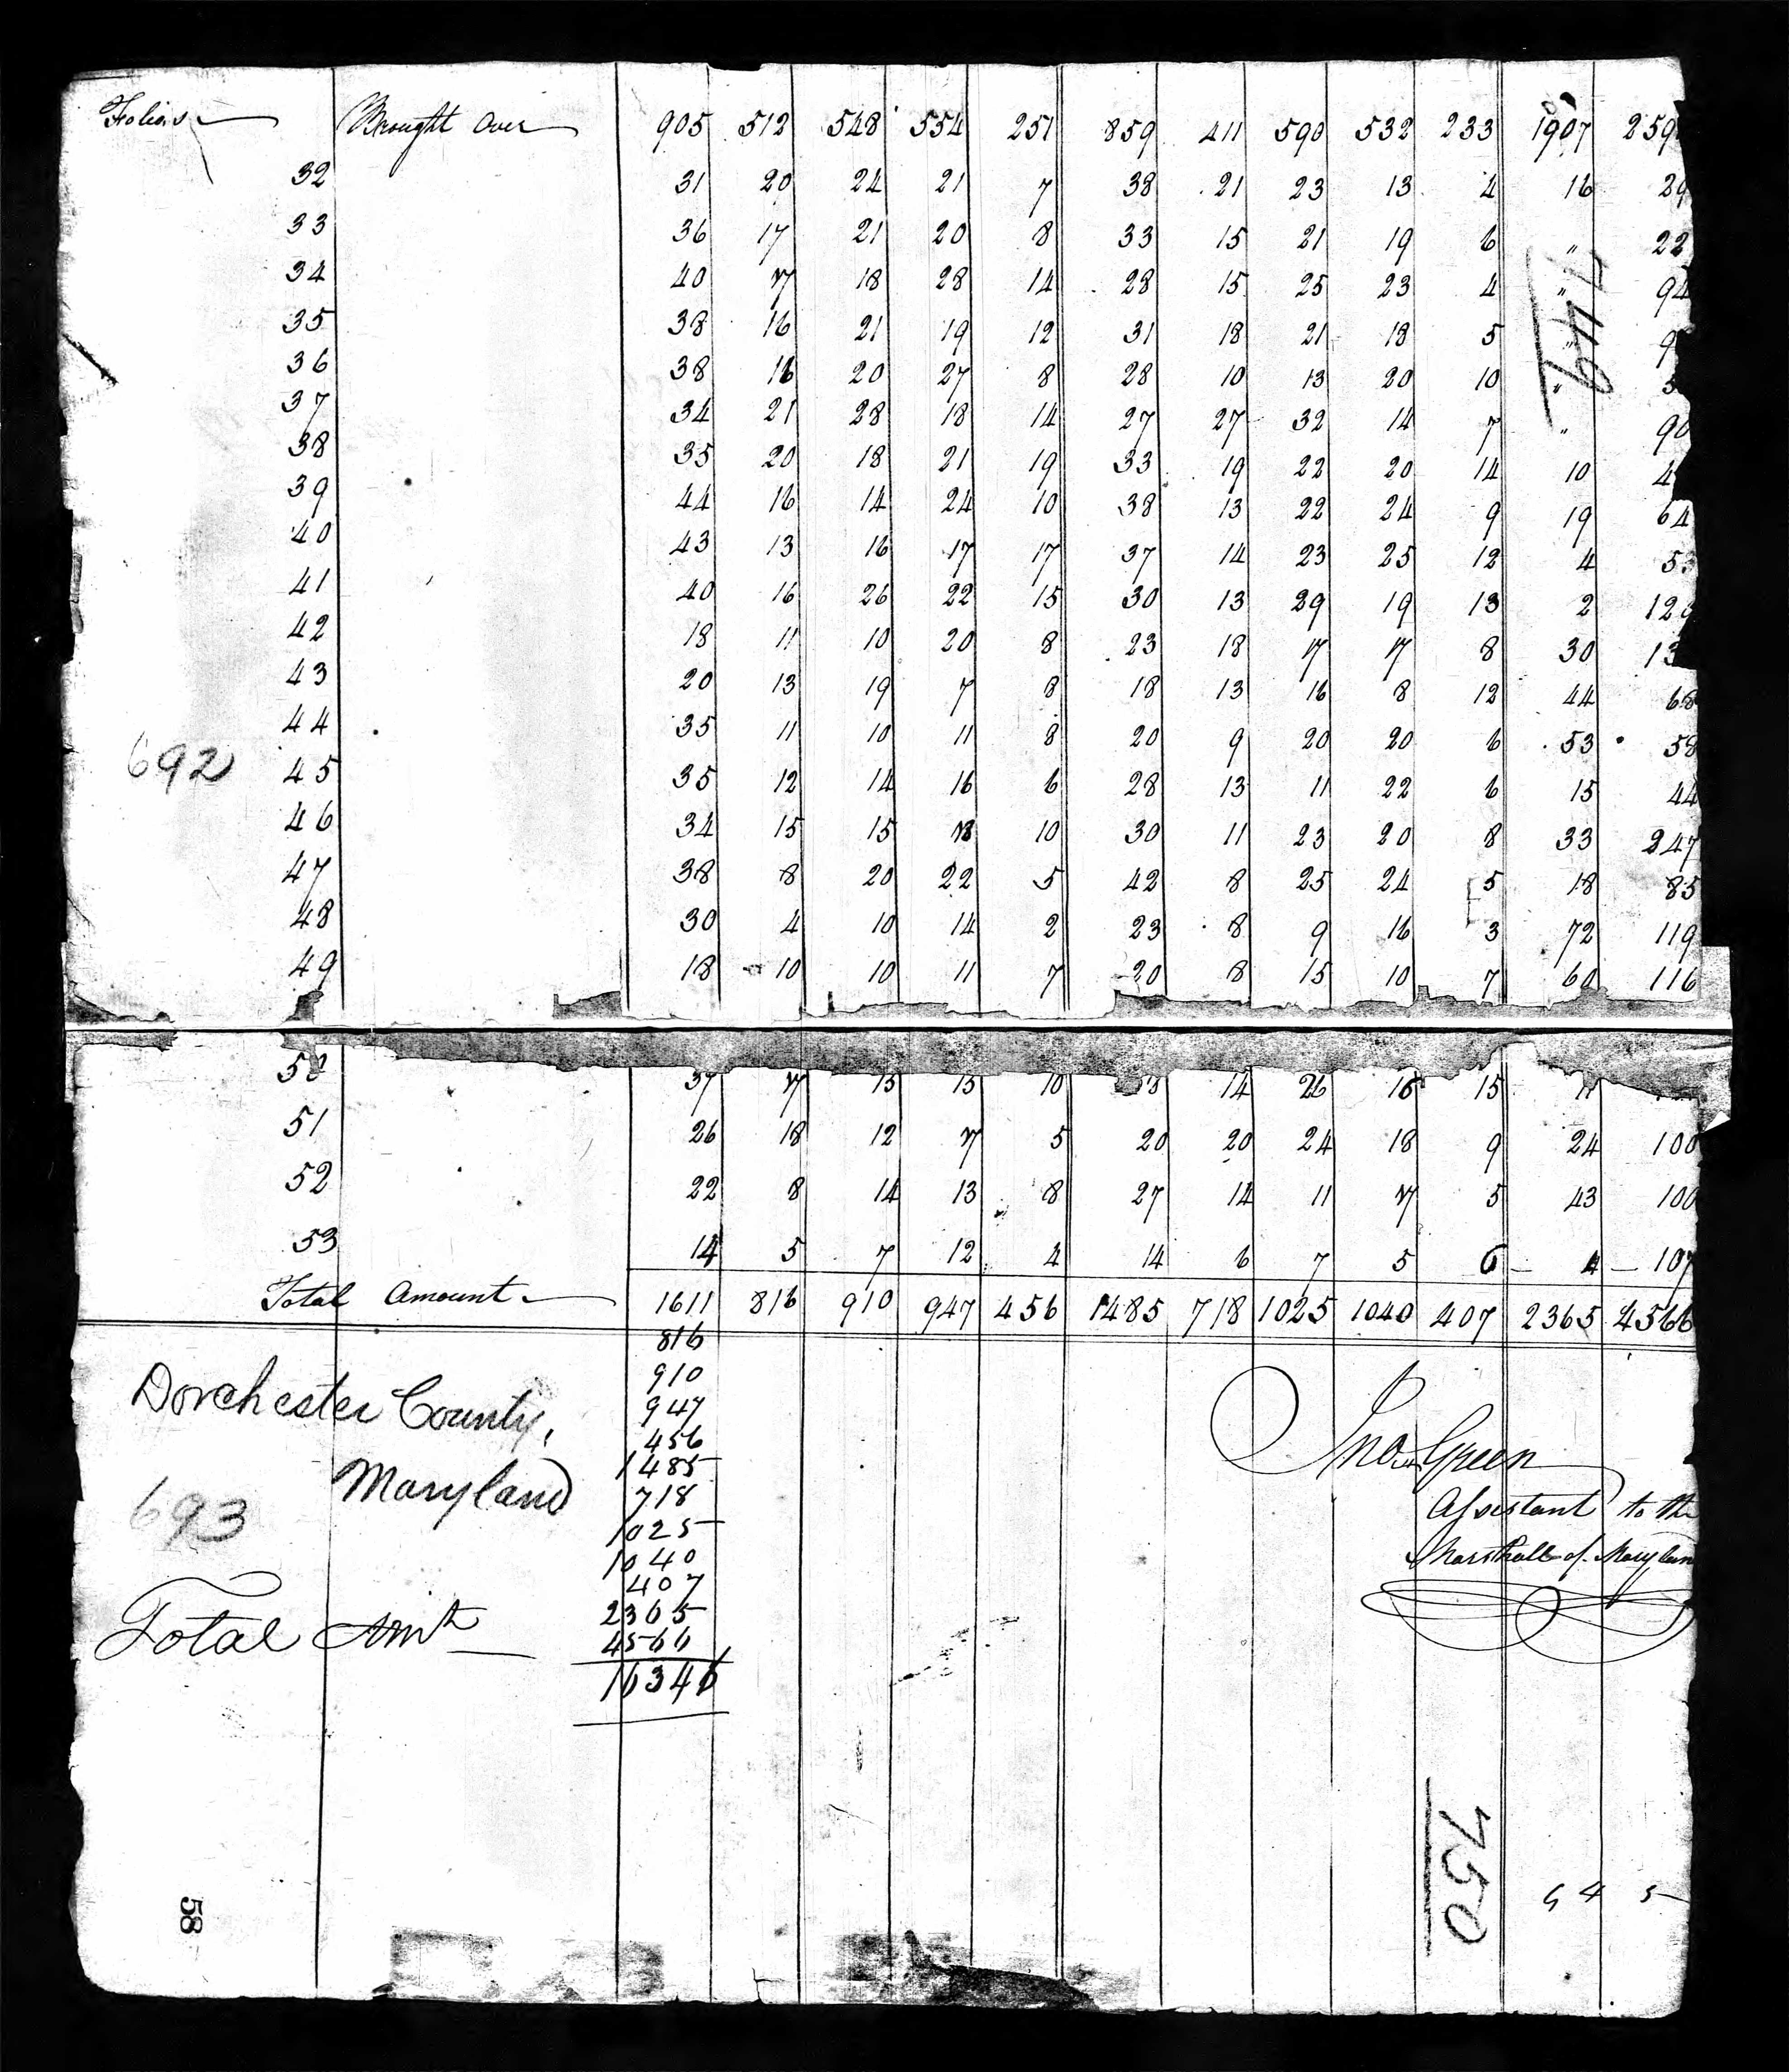 Folios Brought Over 905 512 548 554 251 859 411 590 532 233 1907 259
32 31 20 24 21 7 38 21 23 13 4 16 29
33 36 17 21 20 8 33 15 21 19 6 " 22
34 40 17 18 28 14 28 15 25 23 4 " 94
35 38 16 21 19 12 31 18 21 18 5 " 9
36 38 16 20 27 8 28 10 13 20 10 "
37 34 21 28 18 14 27 27 32 14 7 " 90
38 35 20 18 21 19 33 19 22 20 14 10 4
39 44 16 14 24 10 38 13 22 24 9 19 64
40 43 13 16 17 17 37 14 23 25 12 4 53
41 40 16 26 22 15 30 13 29 19 13 2 12
42 18 11 10 20 8 23 18 17 17 8 30 13
43 20 13 19 7 8 18 13 16 8 12 44 68
44 35 11 10 11 8 20 9 20 20 6 53 58
692 45 35 12 14 16 6 28 13 11 22 6 15 44
46 34 15 15 18 10 30 11 23 20 8 33 247
47 38 8 20 22 5 42 8 25 24 5 18 85
48 30 4 10 14 2 23 8 9 16 3 72 119
49 18 10 10 11 7 20 8 15 10 7 60 116
749
50 37 17 15 15 10 14 26 16 15
51 26 18 12 17 5 20 20 24 18 9 24 100
52 22 8 14 13 8 27 14 11 17 5 43 100
53 14 5 7 12 4 14 6 7 5 6 4 107
Total Amount 1611 816 910 947 456 1485 718 1025 1040 407 2365 4566
816
910
947
456
1485
718
1025
1040
407
2365
4566
16346
Dorchester County,
Maryland
693
Total Amt
Jno. Green
Assistant to the
Marshall of Marylan
750
58